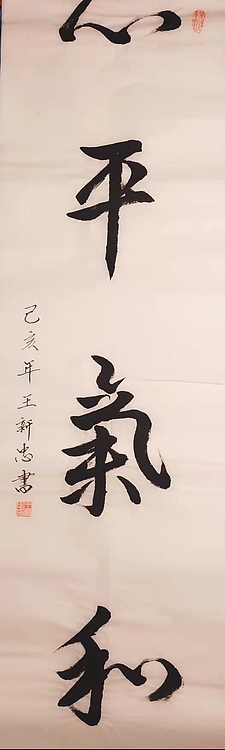 心平氣和
己亥年王新忠書